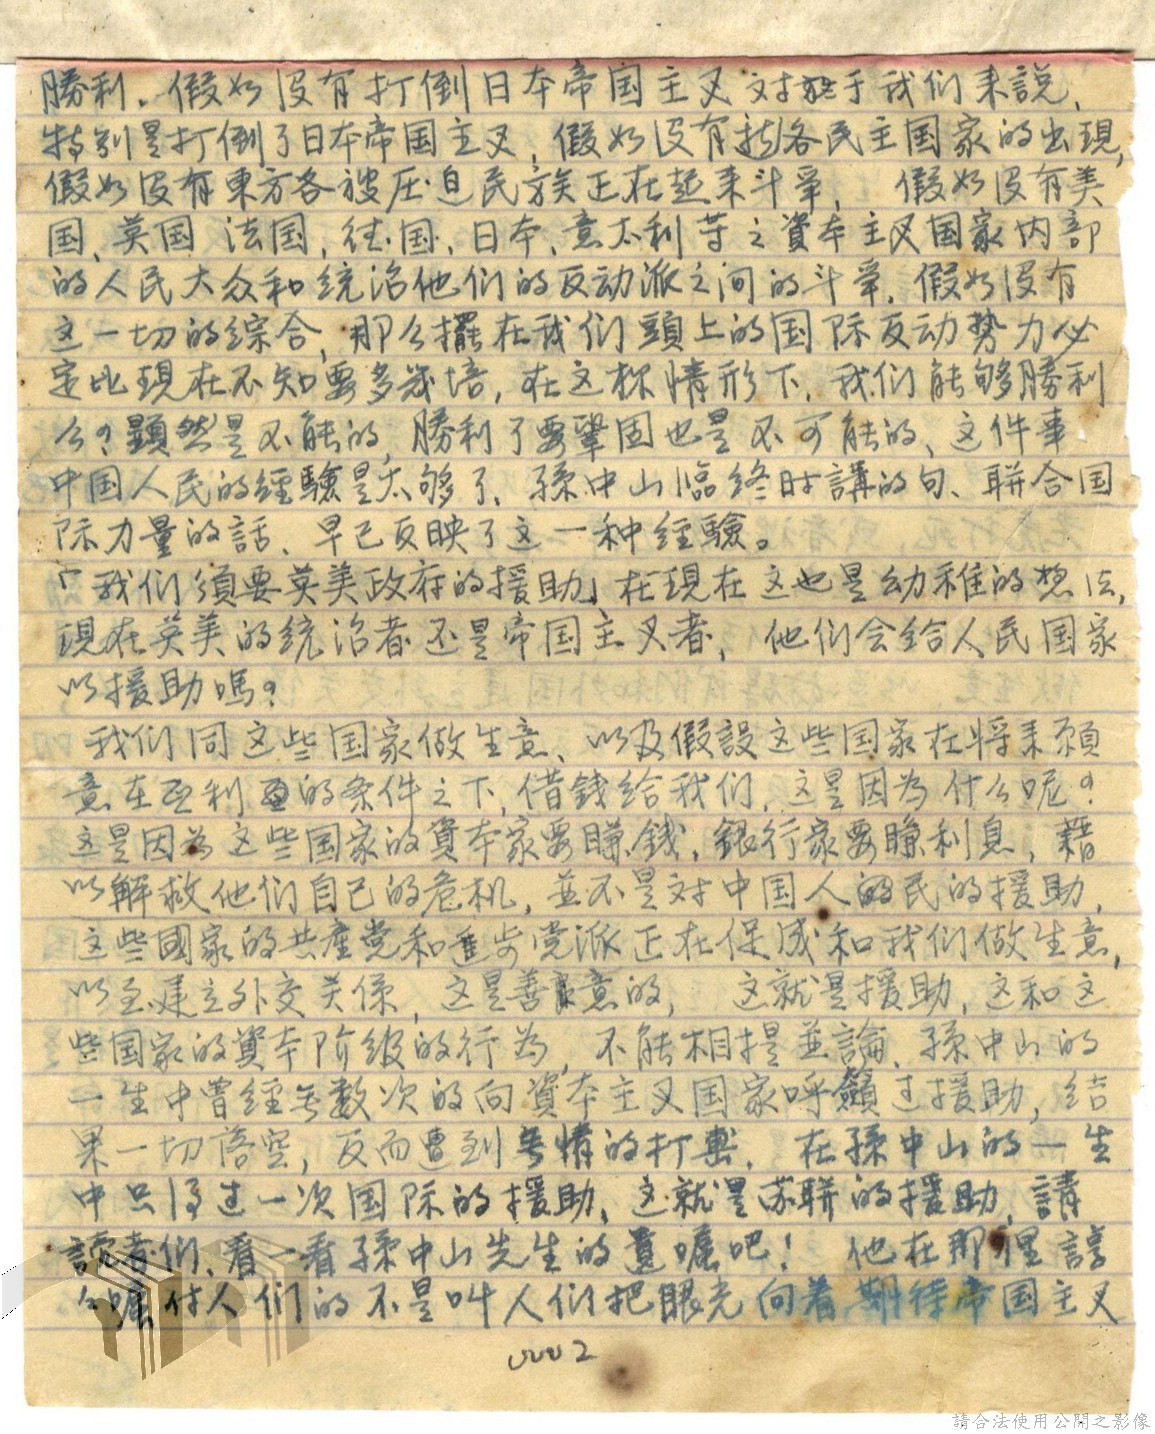 勝利。假如没有打倒日本帝国主义对於于我们来説、
特别是打倒了日本帝国主义，假如没有新各民主国家的出現，
假如没有東方各被压迫民族正在起来斗爭，假如没有美
国、英国 法国，德国，日本、意大利等之資本主义国家内部
的人民大众和統治他们的反动派之间的斗爭，假如没有
这一切的綜合，那么擺在我们頭上的国际反动势力必
定比現在不知要多幾培，在这样情形下，我们能够勝利
么？顕然是不能的，勝利了要鞏固也是不可能的、这件事
中国人民的經驗是太够了、孫中山臨終时講的句、联合国
际力量的話、早已反映了这一种經驗。
「我们須要英美政府的援助」在現在这也是幼稚的想法，
現在英美的统治者还是帝国主义者，他们会给人民国家
以援助嗎？
我们同这些国家做生意、以及假設这些国家在将来願
意在互利的条件之下，借錢给我们，这是因为什么呢？
这是因为这些国家的資本家要賺錢，銀行家要賺利息，藉
以解救他们自己的危机，並不是对中国人民的援助，
这些國家的共産党和進步党派正在促成和我们做生意，
以至建立外交关係，这是善意的，这就是援助，这和这
些国家的資本阶级的行为，不能相提並論、孫中山的
一生中曾經无数次的向資本主义国家呼籲过援助，结
果一切落空，反而遭到无情的打擊，在孫中山的一生
中只得过一次国际的援助、这就是苏联的援助，請
讀者们、看一看孫中山先生的遺嘱吧！他在那裡諄
々嘱付人们的不是叫人们把眼光向着期待帝国主义
0002
請合法使用公開之影像